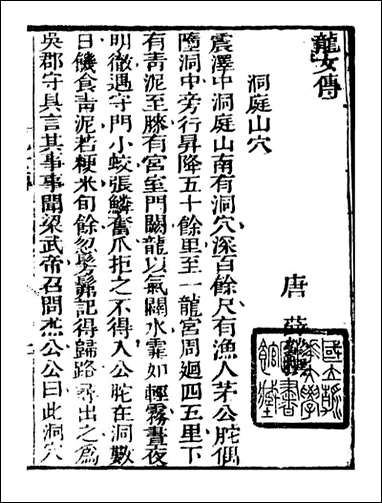 龍女傳
唐 薛
洞庭山穴
震澤中洞庭山南有洞穴深百餘尺有漁人茅公䏢偶
墮洞中旁行昇降五十餘里至一龍宮周迴四五里下
有青泥至膝有宮室門闕龍以氣闢水霏如輕霧晝夜
明徹遇守門小蛟張鱗奮爪拒之不得入公䏢在洞數
日饑食青泥若粳米旬餘忽髣髴記得歸路尋出之爲
吳郡守具言其事事聞梁武帝召問杰公公曰此洞穴